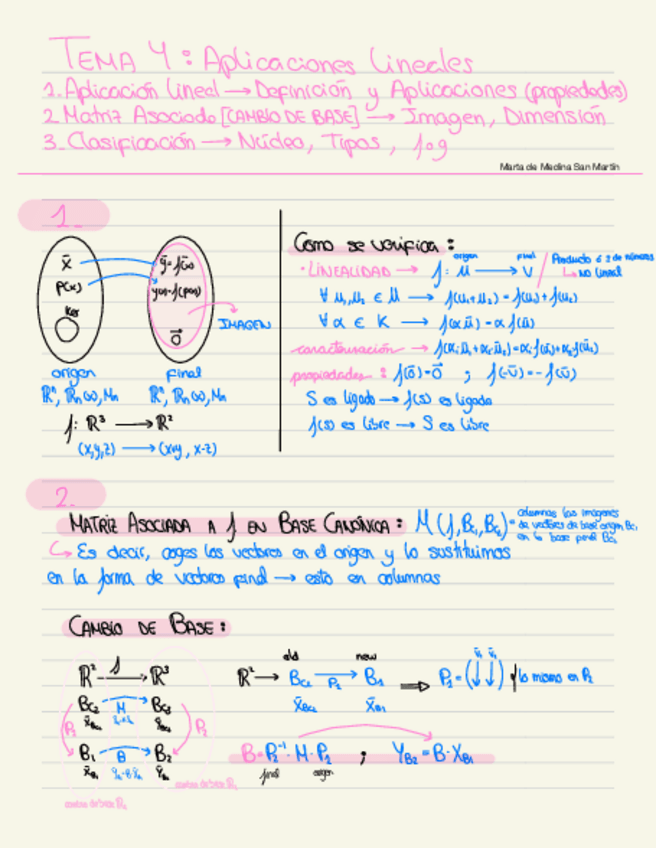 TEMA 4: Aplicaciones Lineales
1. Aplicación lineal → Definición y Aplicaciones (propiedades)
2. Matriz Asociada [CAMBIO DE BASE] → Imagen, Dimensión
3. Clasificación → Núcleo, Tipos, fog
Marta de Medina San Martín
1.
x̄ ȳ=f(x̄)
p(x)
Ker
0⃗
IMAGEN
origen final
ℝⁿ, ℝn(x), Mn ℝⁿ, ℝn(x), Mn
f: ℝ³ → ℝ²
(x,y,z) → (x+y, x-z)
Como se verifica:
· LINEALIDAD → f: U → V
origen final
Producto ó 2 de números
↳ no lineal
∀ u₁,u₂ ∈ U → f(u₁+u₂) = f(u₁)+f(u₂)
∀ α ∈ K → f(αū) = α f(ū)
caracterización → f(α₁ū₁+α₂ū₂)=α₁f(ū₁)+α₂f(ū₂)
propiedades: f(0̄)=0⃗ ; f(-ū)=-f(ū)
S es ligado → f(s) es ligado
f(s) es libre → S es libre
2.
MATRIZ ASOCIADA A f EN BASE CANÓNICA: M(f,Bc,Bc)= columnas las imágenes de vectores de base origen Bc, en la base final Bc
↳ Es decir, coges los vectores en el origen y lo sustituimos
en la forma de vectores final → esto en columnas
CAMBIO DE BASE:
ℝ² f → ℝ³
Bc₂ M → Bc₃
P₁ P₂
B₁ B → B₂
ℝ² → Bc₂ P₁ → B₁
old new
x̄Bc₂ x̄B₁
⇒ P₁=(↓↓) y lo mismo en P₂
B=P₂⁻¹·M·P₁ ; YB₂=B·XB₁
final origen